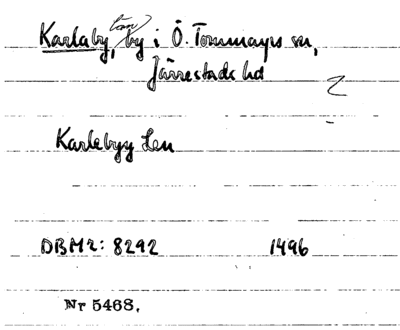 Karlaby, by i Ö. Tommarps sn,
Järrestads hd
Karlebyy Len
DBMr: 8292 1496
Nr 5468.